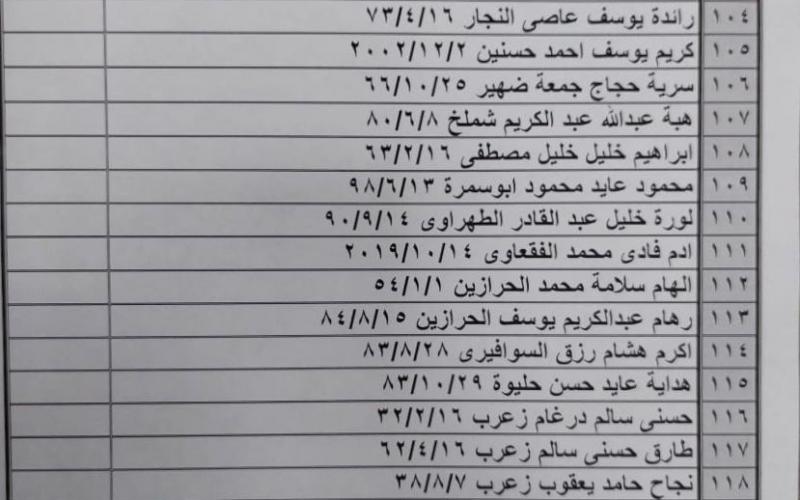 ١٠٤ رائدة يوسف عاصى النجار ٧٣/٤/١٦
١٠٥ كريم يوسف احمد حسنين ٢٠٠٢/١٢/٢
١٠٦ سرية حجاج جمعة ضهير ٦٦/١٠/٢٥
١٠٧ هبة عبدالله عبد الكريم شملخ ٨٠/٦/٨
١٠٨ ابراهيم خليل خليل مصطفى ٦٣/٢/١٦
١٠٩ محمود عايد محمود ابوسمرة ٩٨/٦/١٣
١١٠ لورة خليل عبد القادر الطهراوى ٩٠/٩/١٤
١١١ ادم فادى محمد الفقعاوى ٢٠١٩/١٠/١٤
١١٢ الهام سلامة محمد الحرازين ٥٤/١/١
١١٣ رهام عبدالكريم يوسف الحرازين ٨٤/٨/١٥
١١٤ اكرم هشام رزق السوافيرى ٨٣/٨/٢٨
١١٥ هداية عايد حسن حليوة ٨٣/١٠/٢٩
١١٦ حسنى سالم درغام زعرب ٣٢/٢/١٦
١١٧ طارق حسنى سالم زعرب ٦٢/٤/١٦
١١٨ نجاح حامد يعقوب زعرب ٣٨/٨/٧